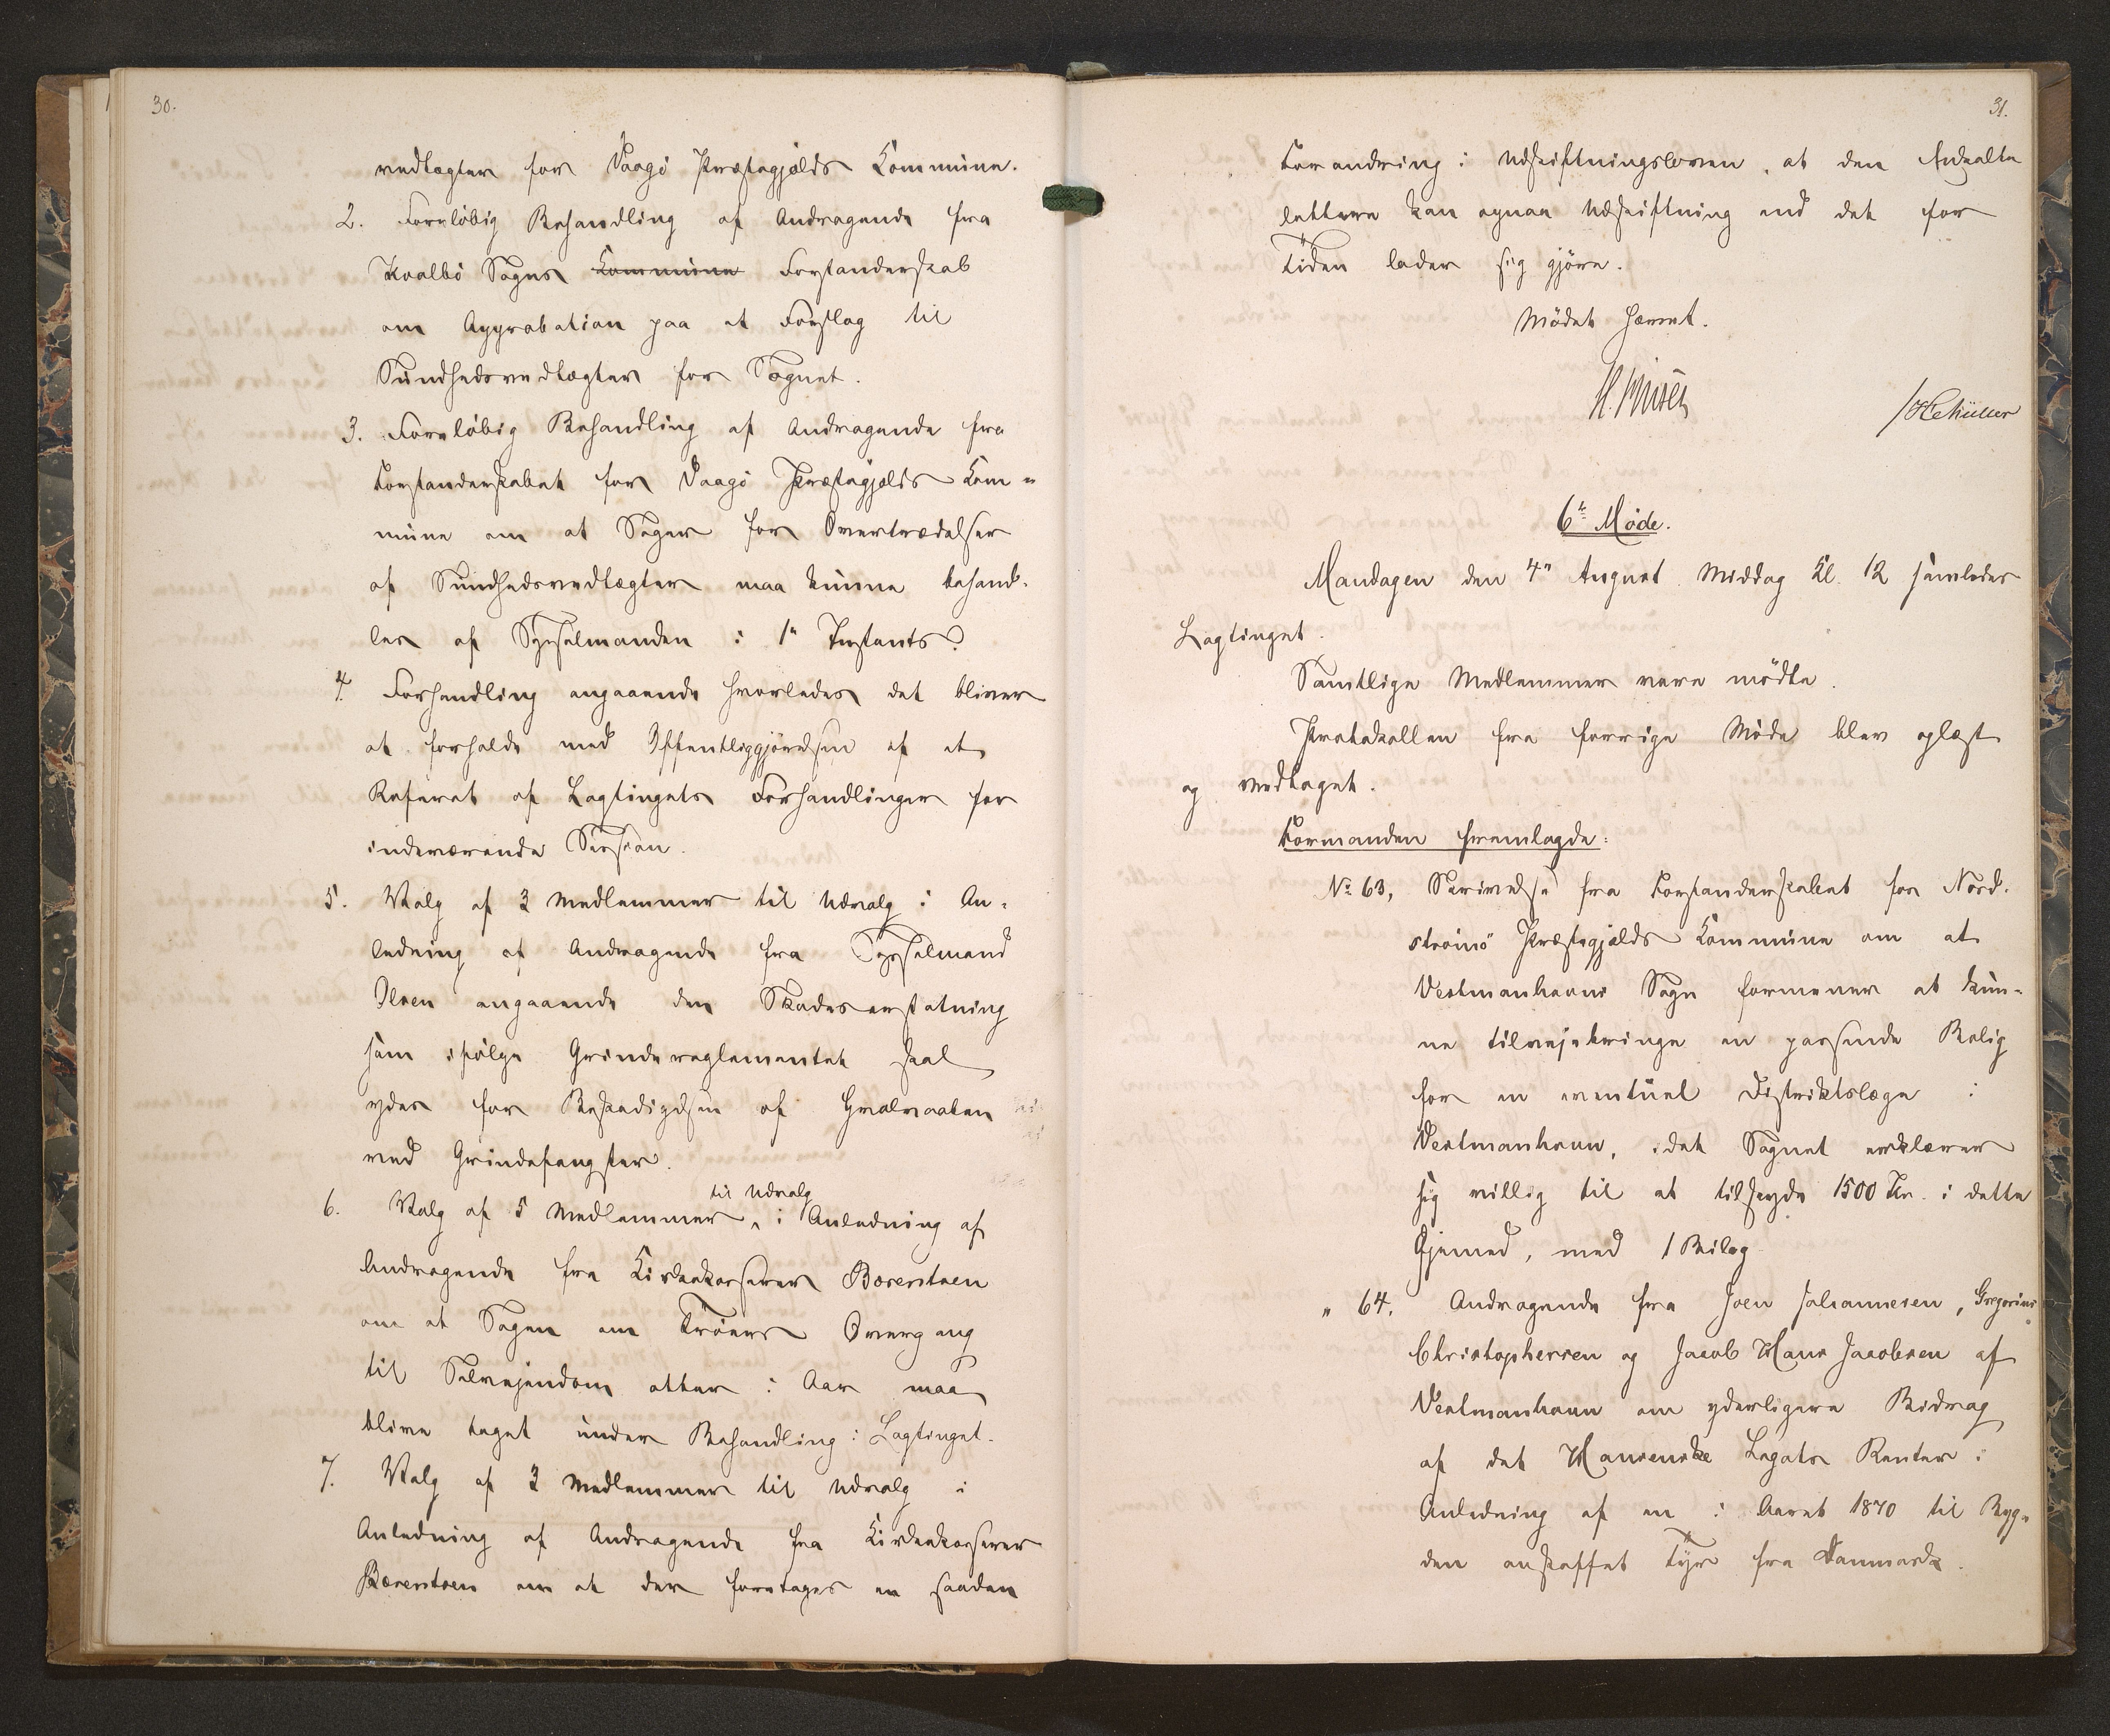 30.
vedtægter for Vaagø Præstegjælds Commune.
2. Foreløbig Behandling af Andragende fra
Kvalbø Sogns Commune Forstanderskab
om Approbation paa et Forslag til
Sundhedsvedtægter for Sognet.
3. Foreløbig Behandling af Andragende fra
Forstanderskabet for Vaagø Præstegjælds Com-
mune om at Sager for Overtrædelser
af Sundhedsvedtægter maa kunne behand-
les af Sysselmanden i 1ste Instants?
4. Forhandling angaaende hvorledes det bliver
at forholde med Offentliggjørelsen af et
Referat af Lagtingets Forhandlinger for
indeværende Session.
5. Valg af 3 Medlemmer til Udvalg i An-
ledning af Andragende fra Sysselmand
Olsen angaaende den Skadeserstatning
som ifølge Grindereglementet skal
ydes for Beskadigelsen af Hvalvaaben
ved Grindefangster.
6. Valg af 5 Medlemmer til Udvalg i Anledning af
Andragende fra Kirkekasserer Bærentsen
om at Sagen om Trøers Overgang
til Selvejendom atter i Aar maa
blive taget under Behandling i Lagtinget.
7. Valg af 3 Medlemmer til Udvalg i
Anledning af Andragende fra Kirkekasserer
Bærentsen om at der foretages en saadan
31.
Forandring i Udskiftningsloven, at den Enkelte
lettere kan opnaa Udskiftning end det for
Tiden lader sig gjøre.
Mødet hævet.
6te Møde.
Mandagen den 4de August Middag Kl. 12 samledes
Lagtinget.
Samtlige Medlemmer vare mødte.
Protokollen fra forrige Møde blev oplæst
og vedtaget.
Formanden fremlagde:
No 63, Skrivelse fra Forstanderskabet for Nord-
strømø Præstegjælds Commune om at
Vestmanhavns Sogn formener at kun-
ne tilvejebringe en passende Bolig
for en eventuel Distriktslæge i
Vestmanhavn, idet Sognet erklærer
sig villig til at tilskyde 1500 Kr. i dette
Øjemed, med 1 Bilag
" 64. Andragende fra Joen Johannesen, Gregorius
Christophersen og Jacob Hans Jacobsen af
Vestmanhavn om yderligere Bidrag
af det Hansenske Legats Renter i
Anledning af en i Aaret 1870 til Byg-
den anskaffet Tyr fra Danmark.